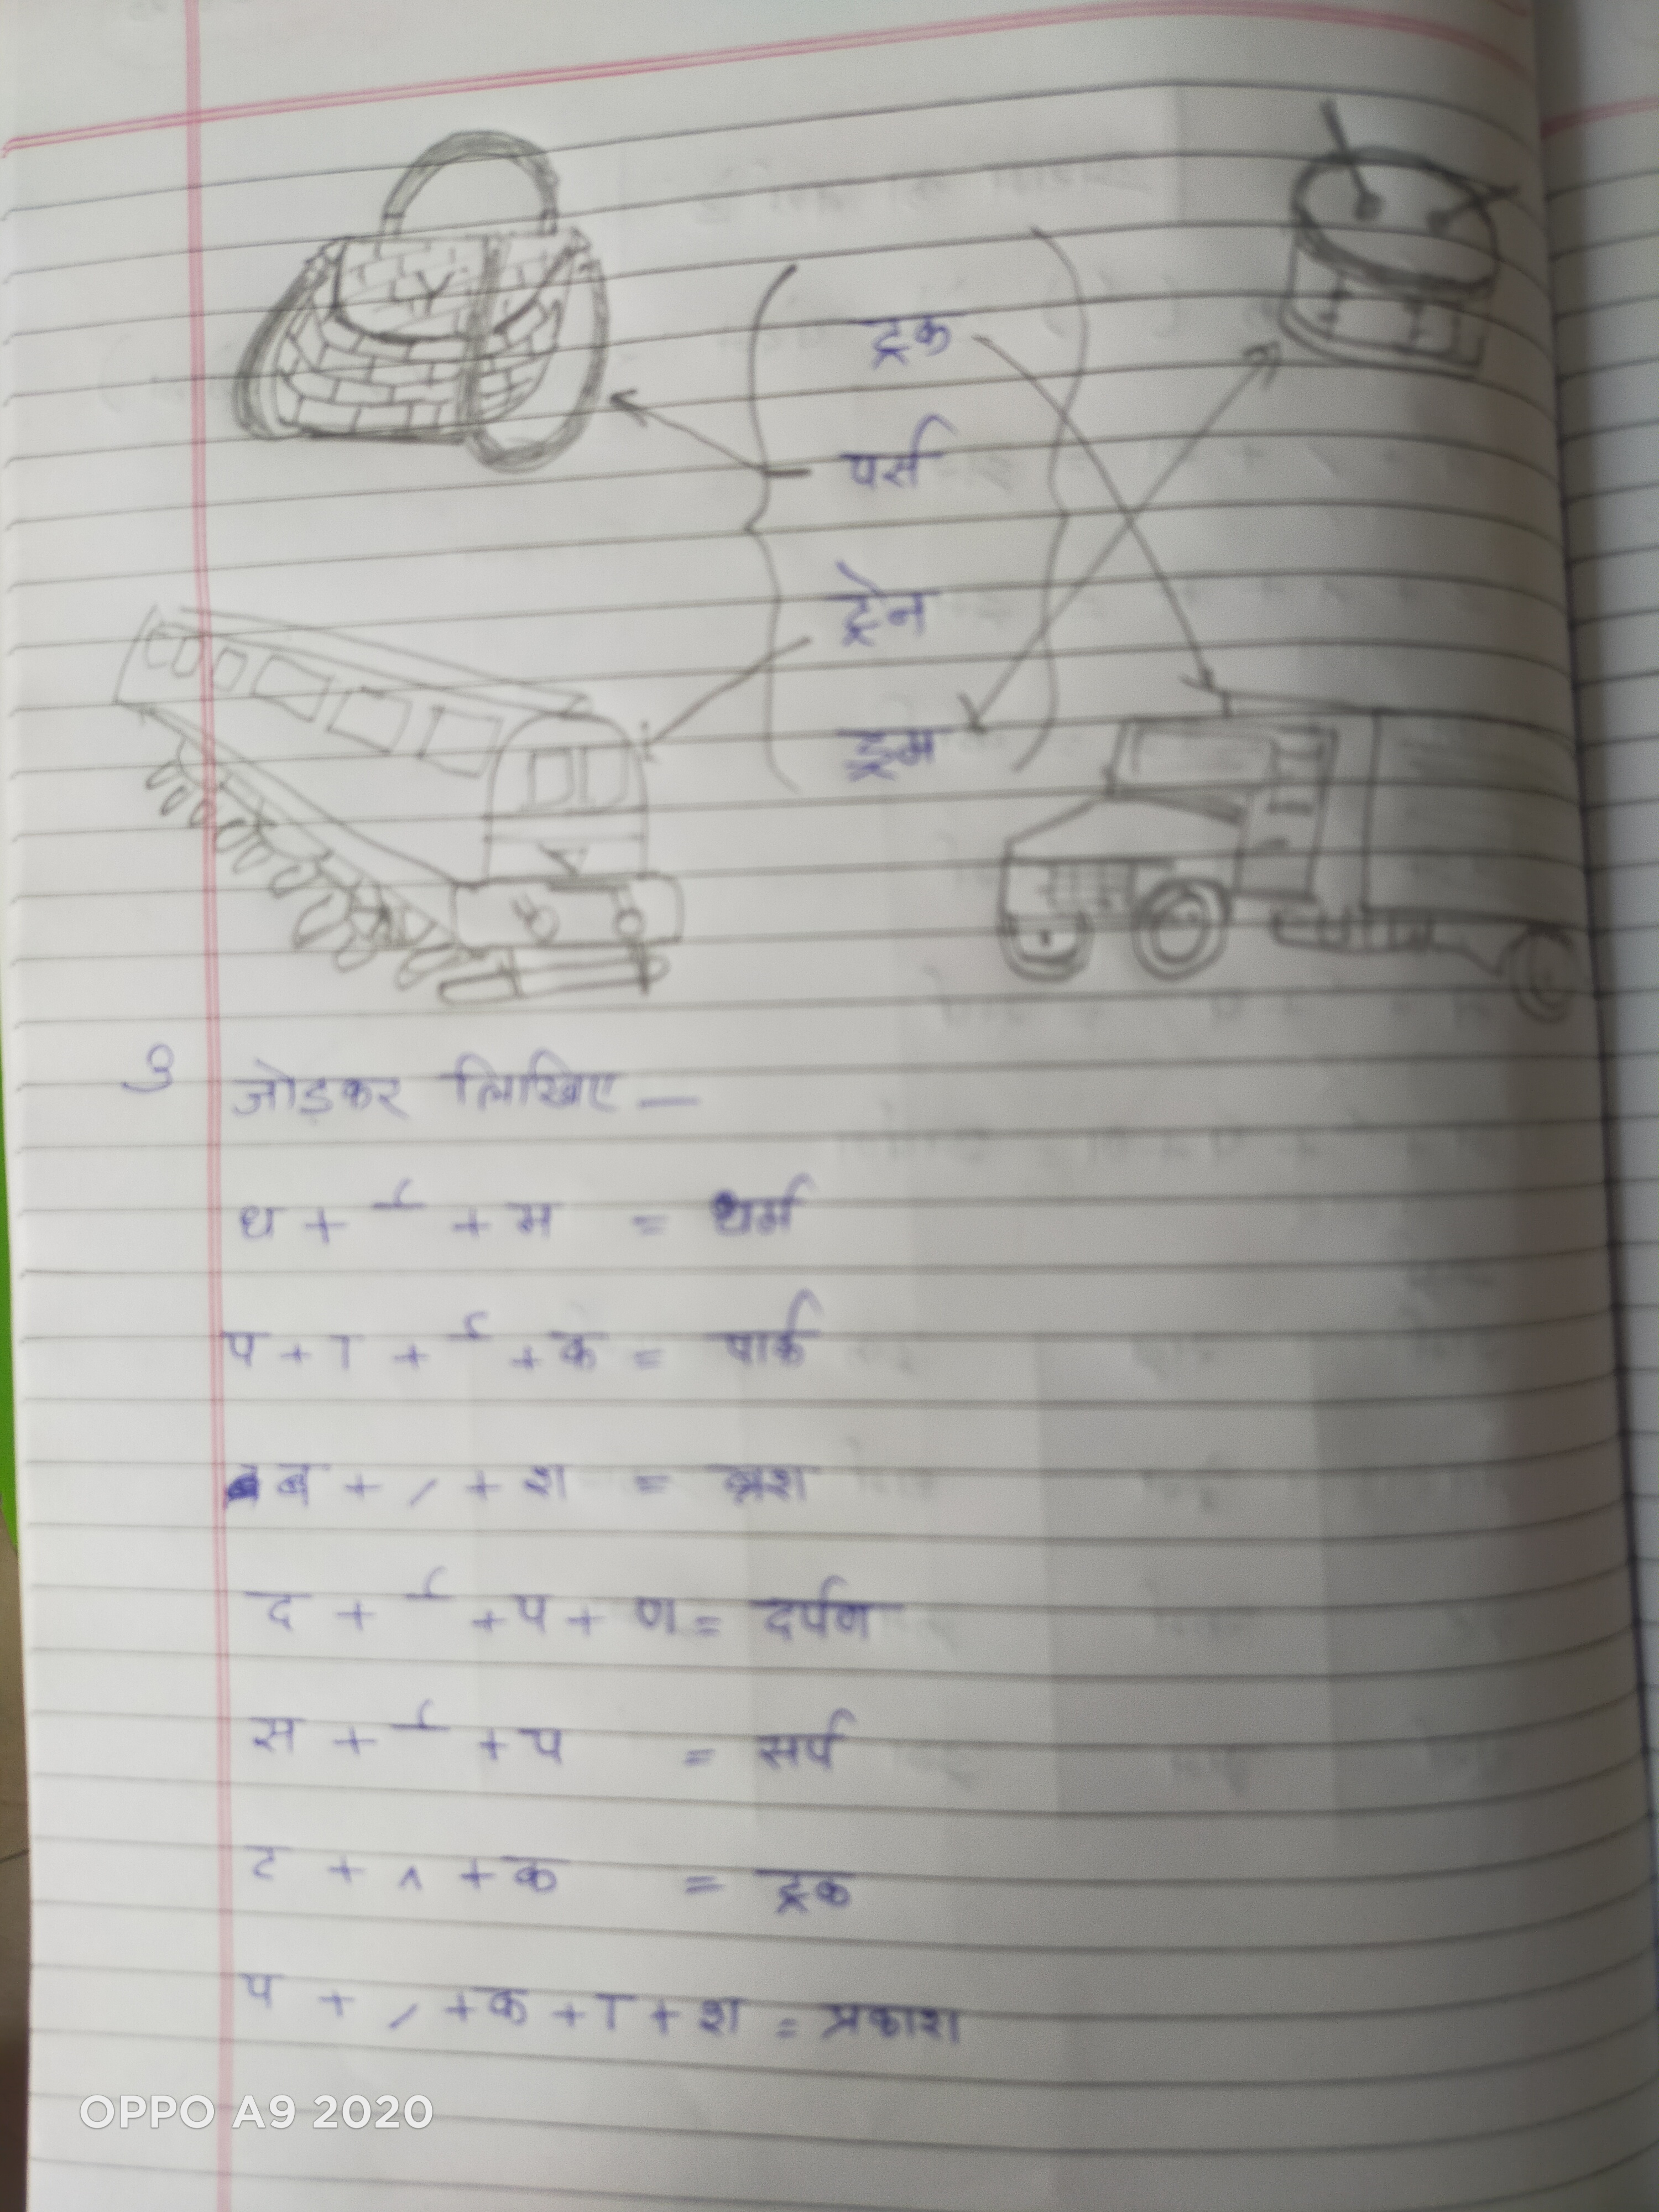 LY
ट्रक
पर्स
ट्रेन
ड्रम
3 जोड़कर लिखिए —
ध + र्‍ + म = धर्म
प + ा + र्‍ + क = पार्क
ब + ्र + श = ब्रश
द + र्‍ + प + ण = दर्पण
स + र्‍ + प = सर्प
ट + ्र + क = ट्रक
प + ्र + क + ा + श = प्रकाश
OPPO A9 2020